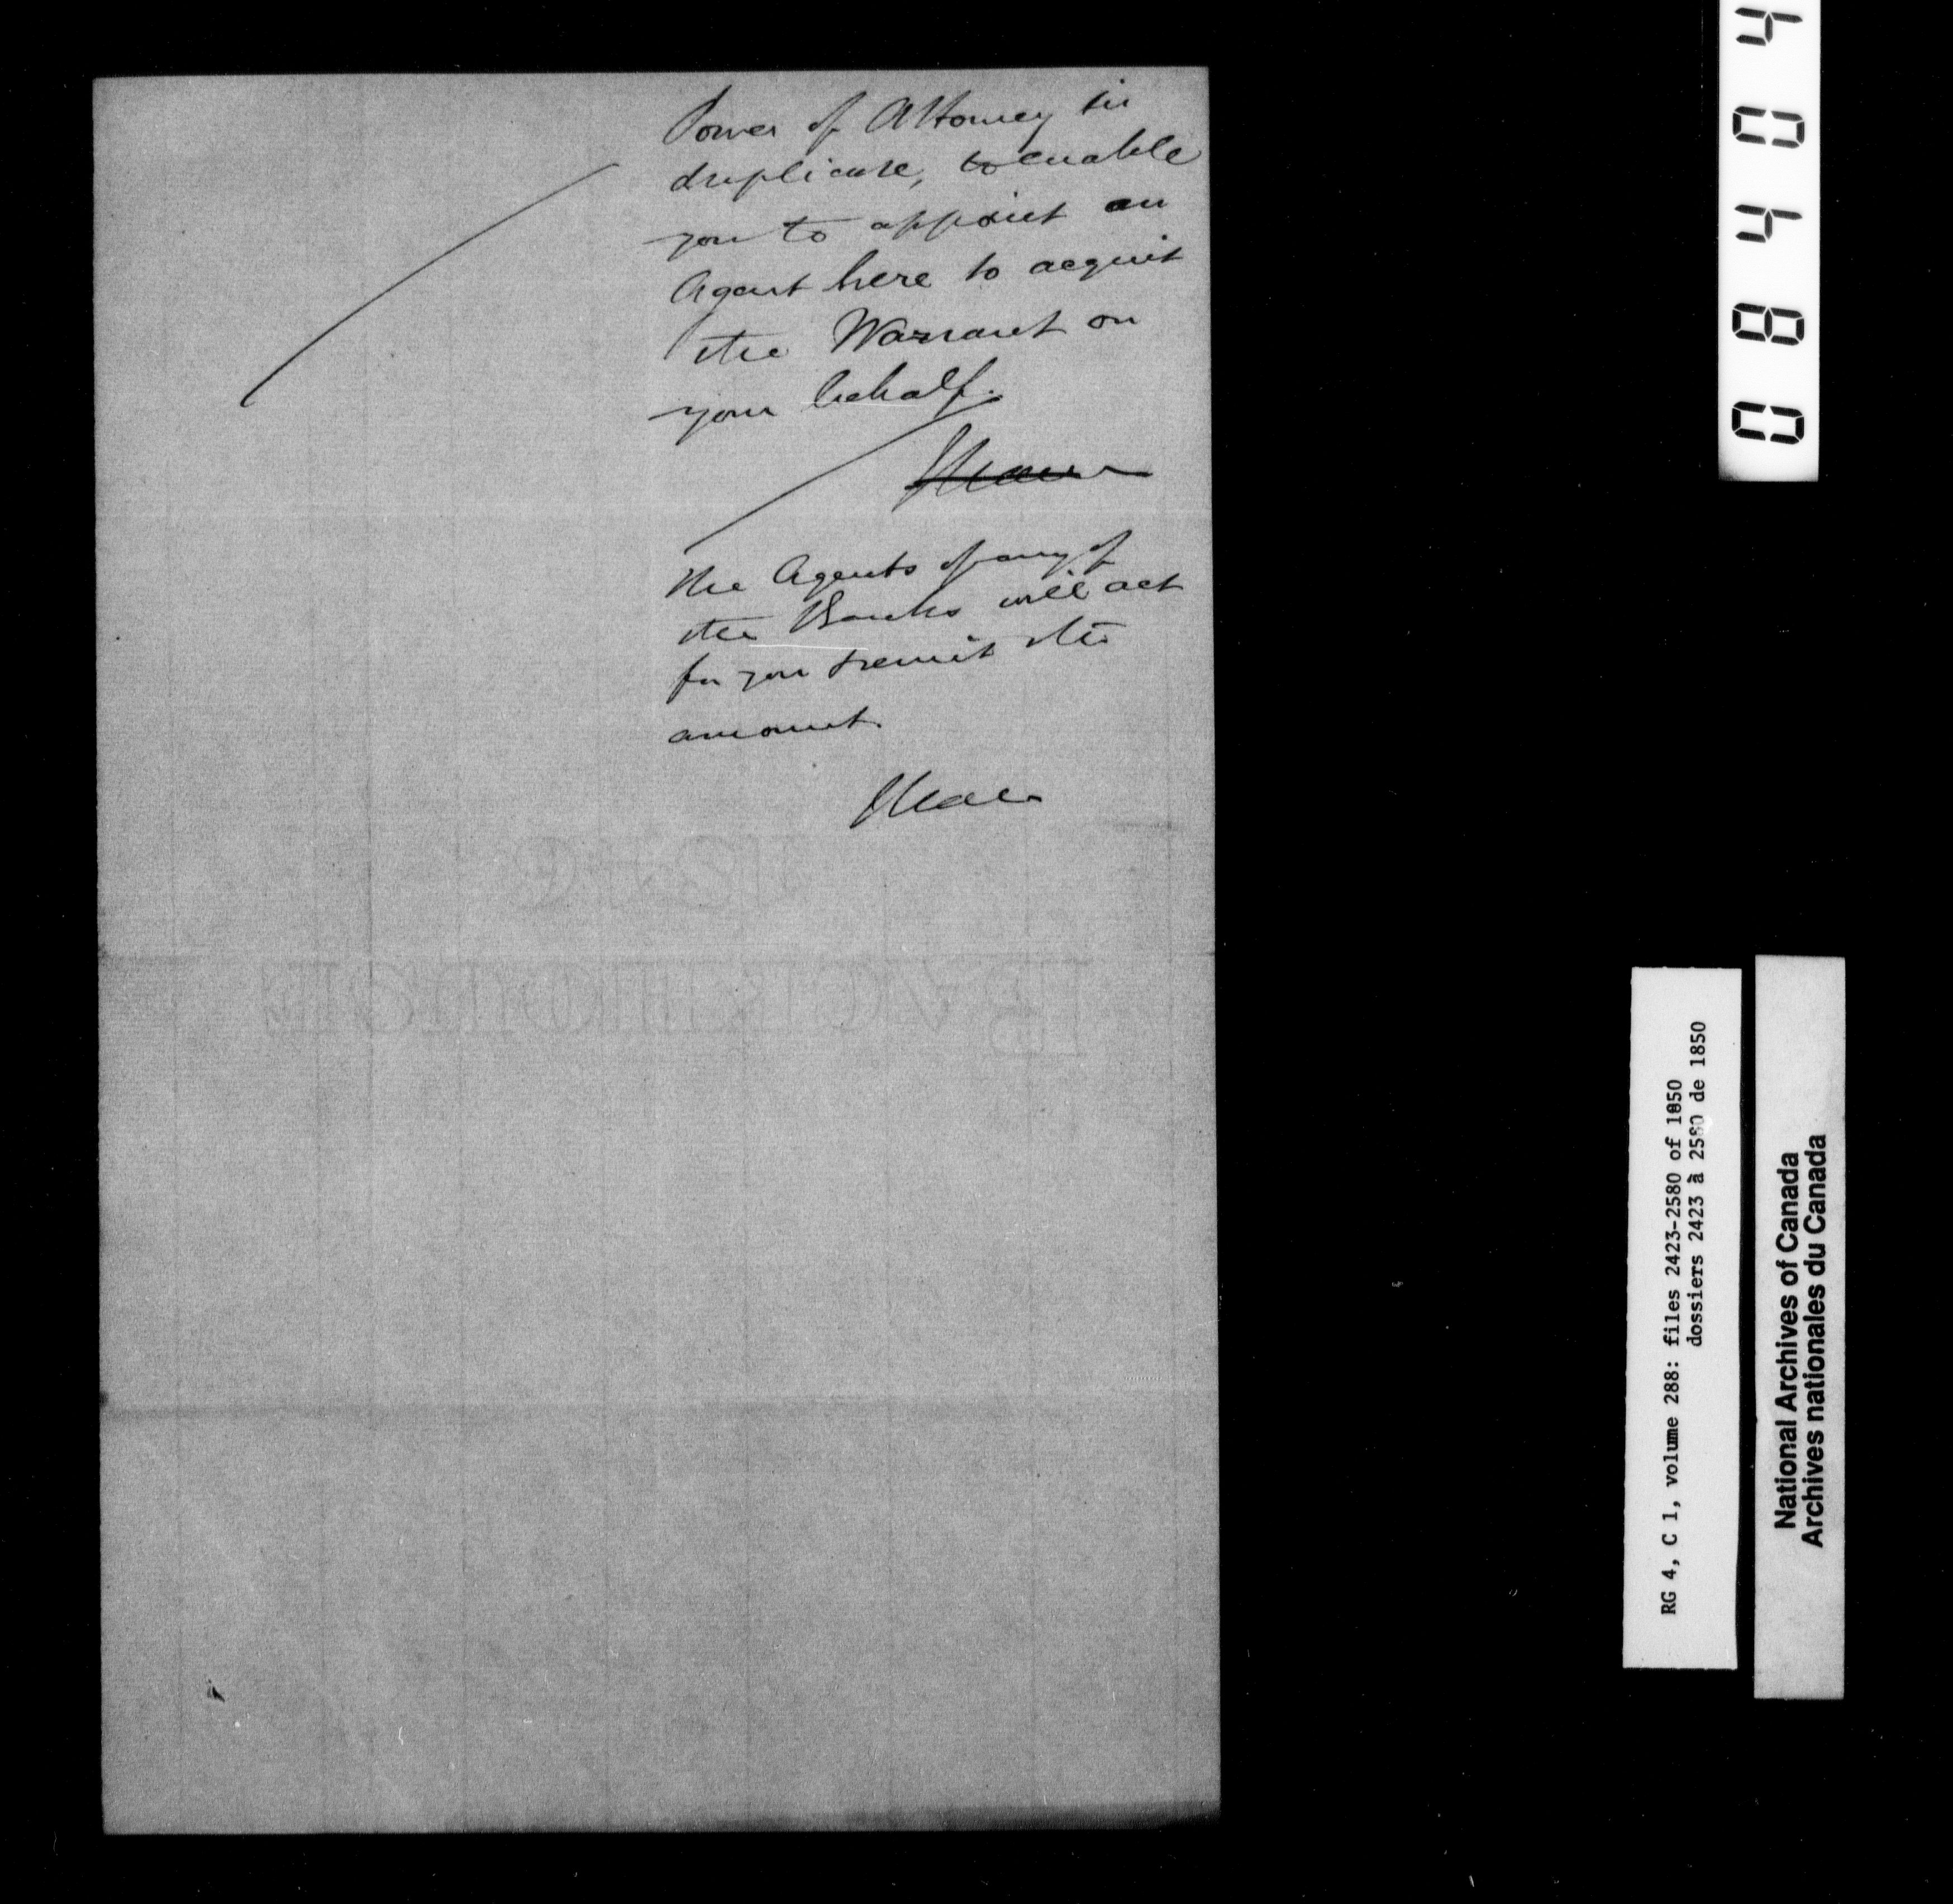 Power of Attorney in
duplicate, to enable
you to appoint an
Agent here to acquit
the Warrant on
your behalf.
The Agents of any of
the Banks will act
for you & remit the
amount.
08404
RG 4, C 1, volume 288: files 2423-2580 of 1850
dossiers 2423 à 2580 de 1850
National Archives of Canada
Archives nationales du Canada